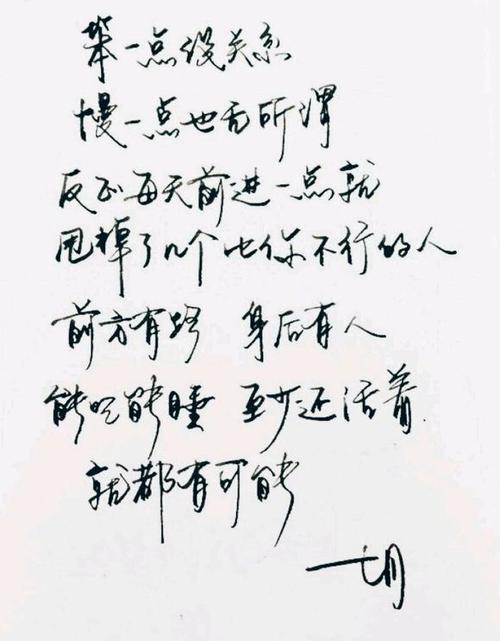 笨一点没关系
慢一点也无所谓
反正每天前进一点就
甩掉了几个比你不行的人
前方有路 身后有人
能吃能睡 至少还活着
就都有可能
七月